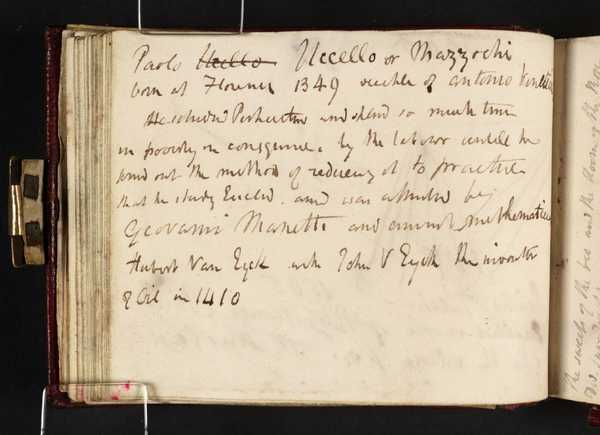 Paolo Ucello Uccello or Mazzochi
born at Florence 1349 of Antonio
He studied Perspective and spend so much time
in poverty in consequence. by the labour untill he
found out the method of reducing it to practice
that he study Euclid. and was assisted by
Geovanni Manetti and eminent mathematician
Hubert Van Eyck with John V Eyck the inventor
of Oil in 1410
The sweep of the and the of the